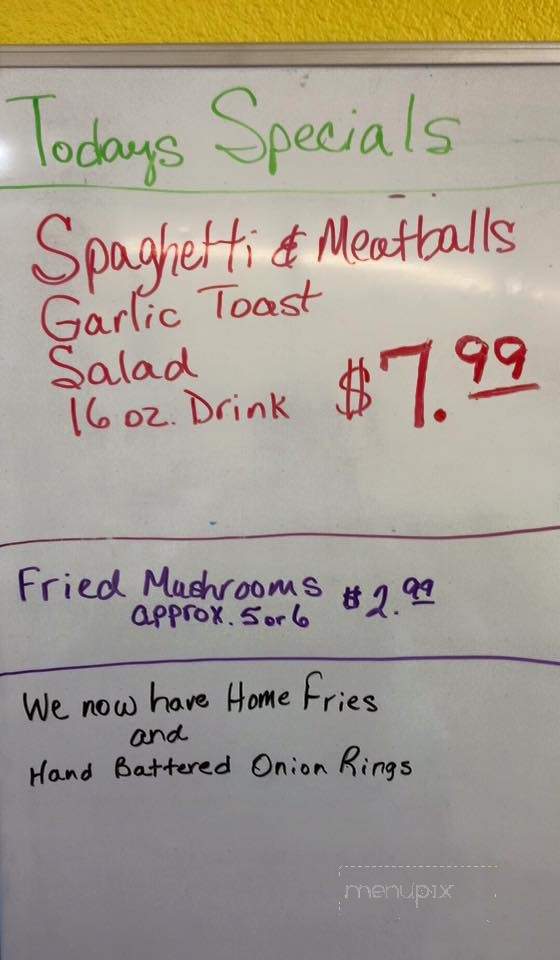 Todays Specials
Spaghetti & Meatballs
Garlic Toast
Salad
16 oz. Drink $7.99
Fried Mushrooms $2.99
approx. 5 or 6
We now have Home Fries
and
Hand Battered Onion Rings
menupix